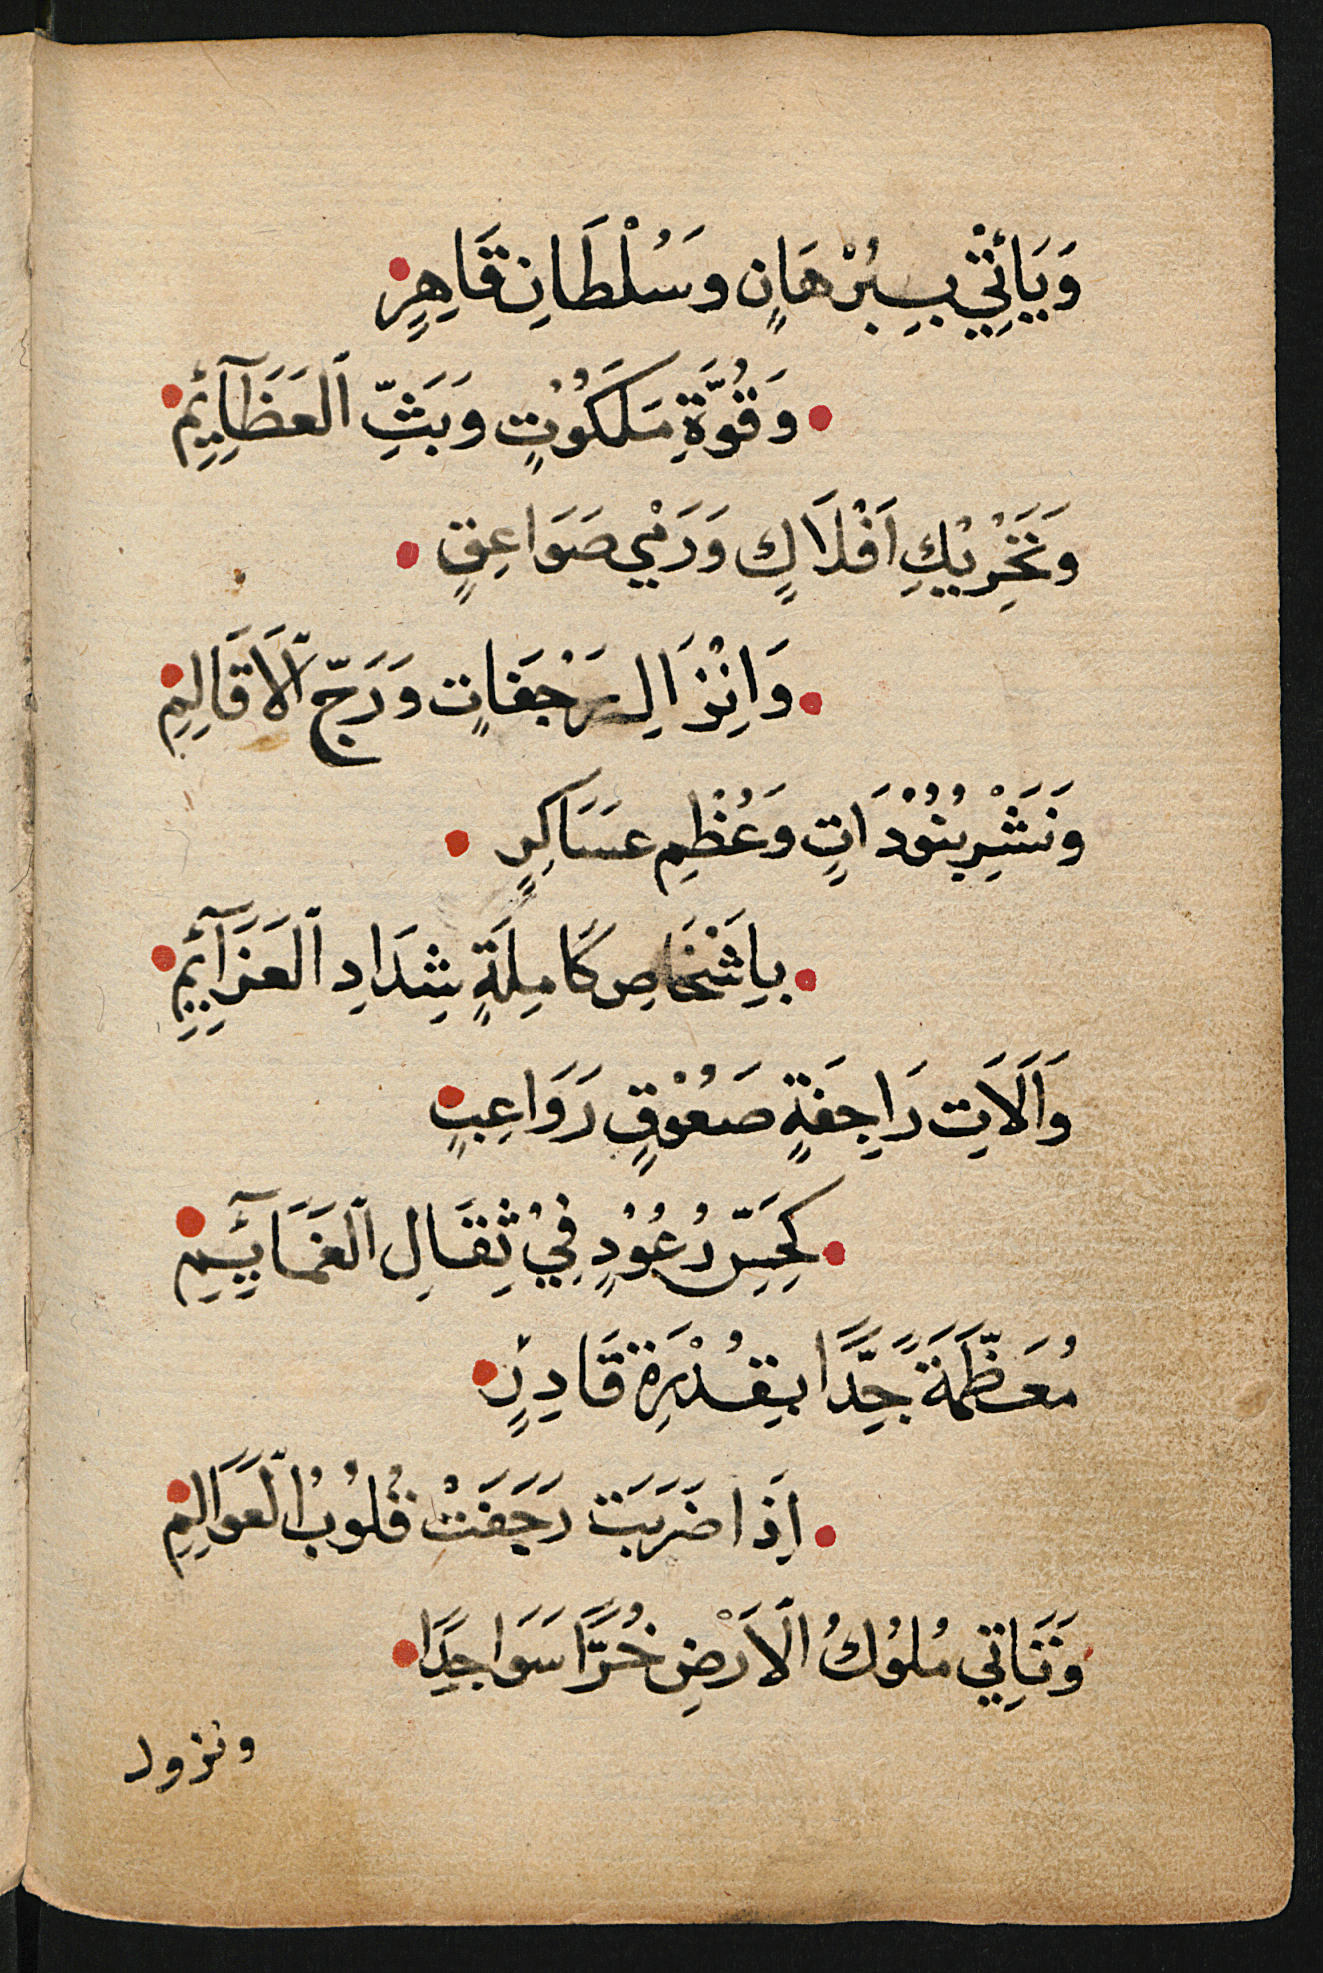 وَيَأْتِيْ بِبُرْهَانٍ وَسُلْطَانِ قَاهِرٍ
وَقُوَّةِ مَلَكُوْتٍ وَبَثِّ ٱلعَظَآئِمِ
وَتَحْرِيْكِ اَفْلَاكٍ وَرَمْيِ صَوَاعِقٍ
وَانْزَالِ مَرْجَفَاتٍ وَرَجِّ ٱلَاقَالِمِ
وَنَشْرِ بُنُوْدَاتٍ وَعُظْمِ عَسَاكِرٍ
بِاَشْخَاصِ كَامِلَةٍ شِدَادِ ٱلعَزَآئِمِ
وَاَلَاتِ رَاجِفَةٍ صَعُوْقٍ رَوَاعِبٍ
كَحِسِّ رُعُوْدٍ فِيْ ثِقَالِ ٱلغَمَآئِمِ
مُعَظَّمَةً جِّدًا بِقُدْرَةِ قَادِرٍ
اِذَا ضَرَبَت رَجَفَتْ قُلُوْبُ ٱلعَوَالِمِ
وَتَاتِي مُلُوْكُ ٱلاَرْضِ خُرًّا سَوَاجِدًا
ونزول